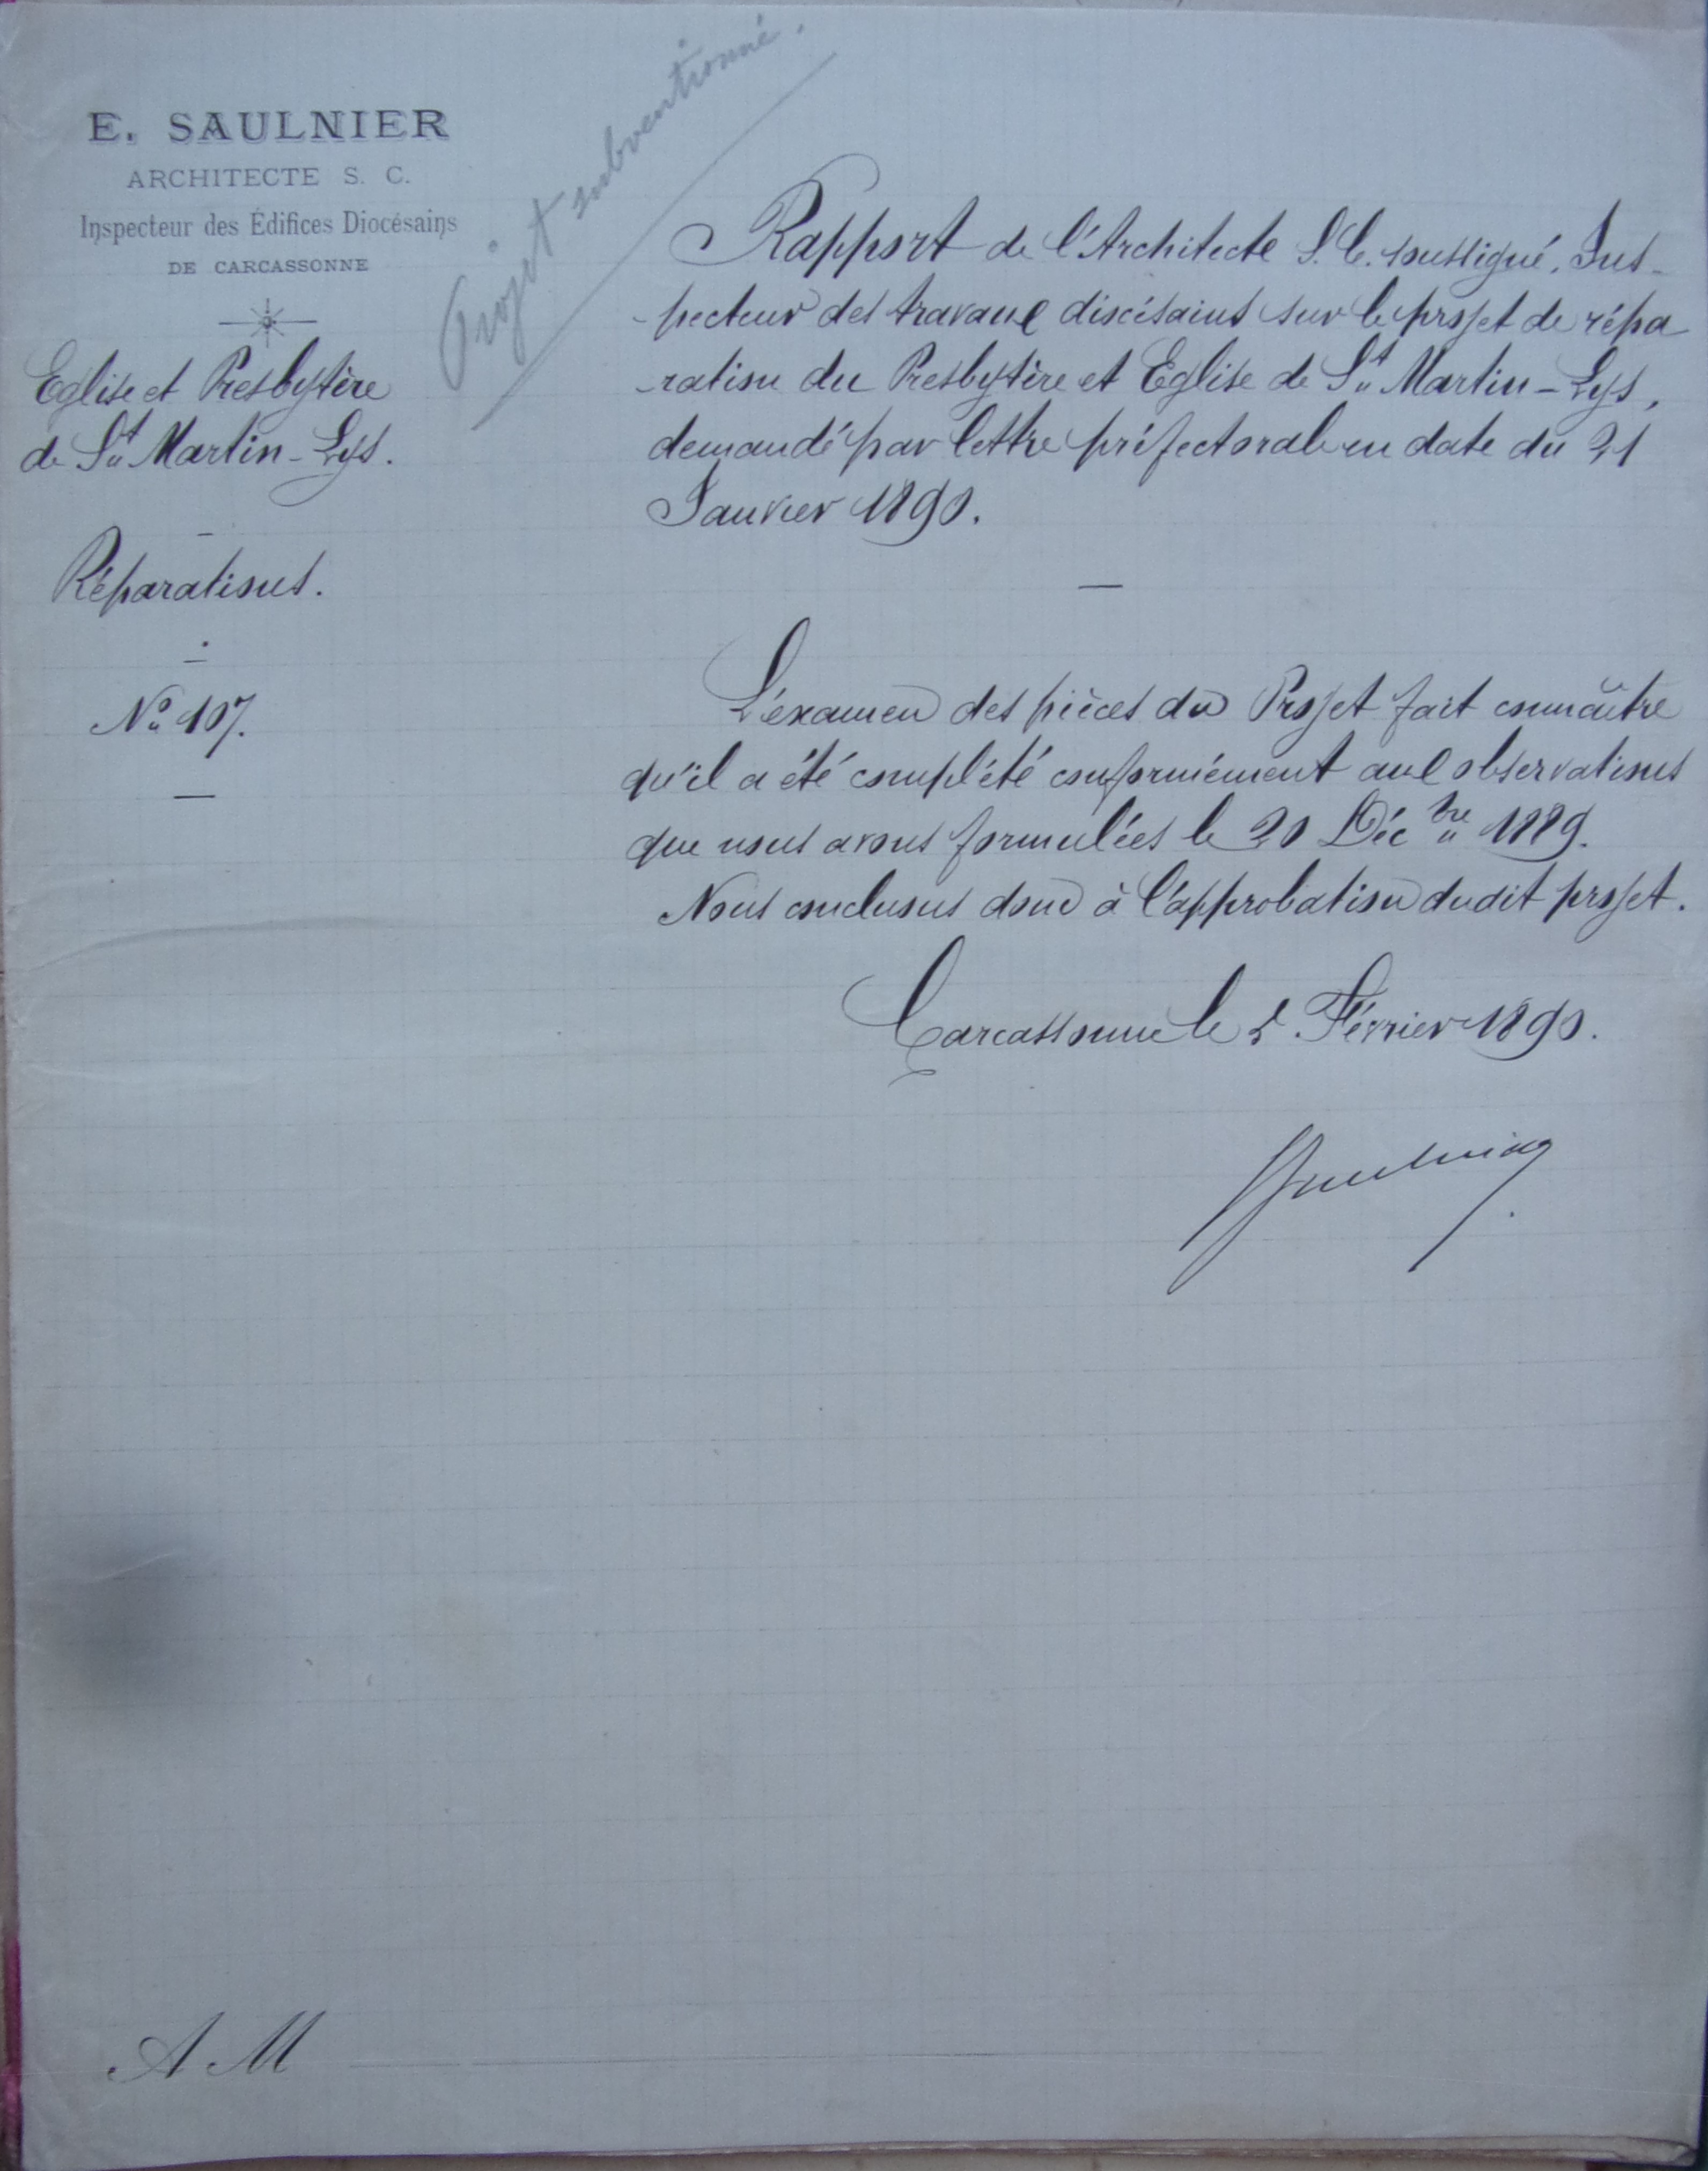 E. SAULNIER
ARCHITECTE S. C.
Inspecteur des Édifices Diocésains
DE CARCASSONNE
Projet subventionné.
Eglise et Presbytère
de St Martin-Lys.
Réparations.
No 107.
Rapport de l'Architecte S.C. soussigné, Ins-
-pecteur des travaux diocésains sur le projet de répa
-ration du Presbytère et Eglise de St Martin-Lys,
demandé par lettre préfectorale en date du 21
Janvier 1890.
L'examen des pièces du Projet fait connaître
qu'il a été complété conformément aux observations
que nous avons formulées le 20 Déc bre 1889.
Nous concluons donc à l'approbation dudit projet.
Carcassonne le Février 1890.
Saulnier
A M